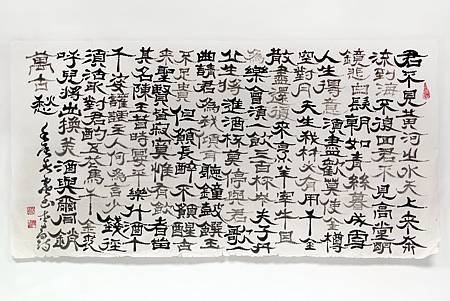 君不見黃河之水天上來奔
流到海不復回君不見高堂明
鏡悲白髮朝如青絲暮成雪
人生得意須盡歡莫使金樽
空對月天生我材必有用千金
散盡還復來烹羊宰牛且
為樂會須一飲三百杯岑夫子丹
丘生將進酒杯莫停與君歌一
曲請君為我傾耳聽鐘鼓饌玉
不足貴但願長醉不願醒古
來聖賢皆寂寞惟有飲者留
其名陳王昔時宴平樂斗酒十
千恣讙謔主人何為言少錢徑
須沽取對君酌五花馬千金裘
呼兒將出換美酒與爾同銷
萬古愁